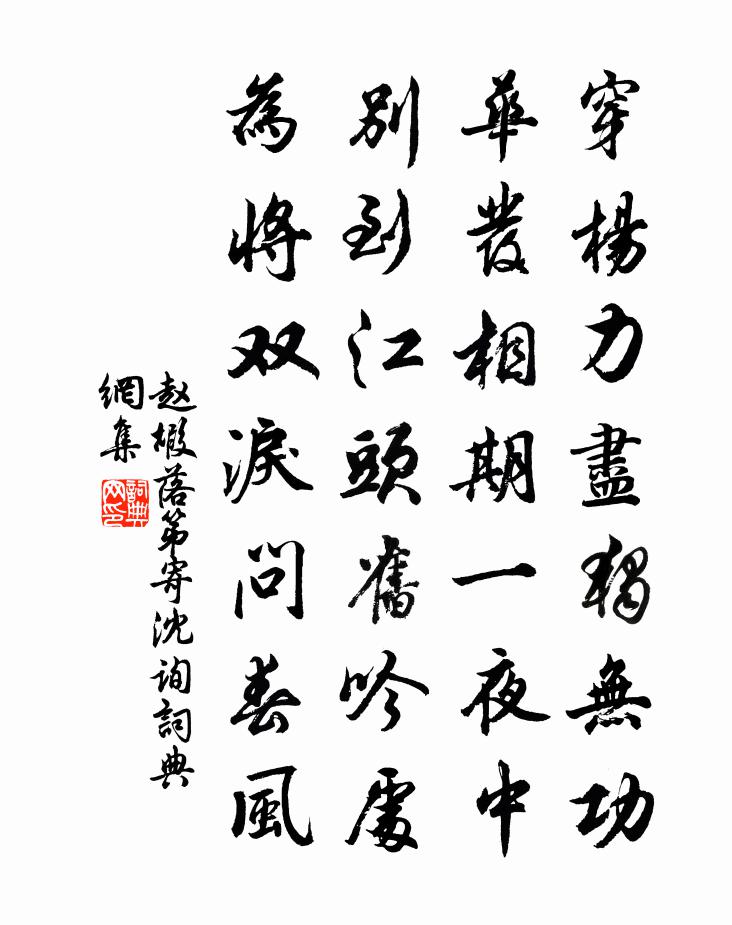 穿楊力盡獨無功
華發相期一夜中
別到江頭舊吟處
為將双淚問春風
赵嘏落第寄沈詢詞典
網集
詞典
网印